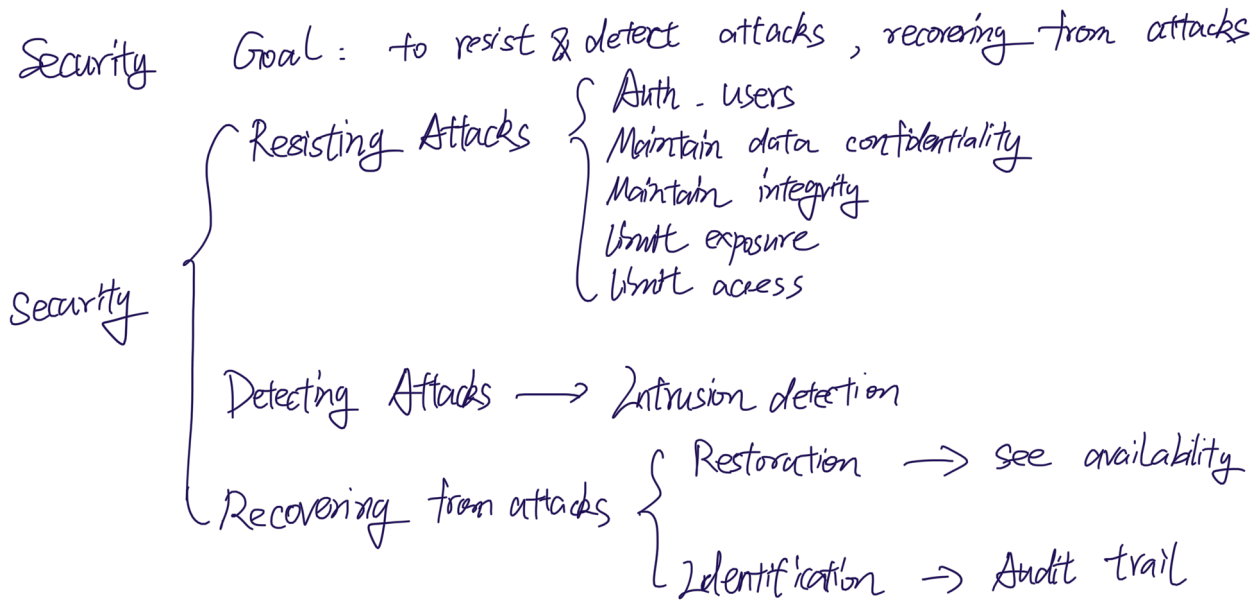 Security Goal : to resist & detect attacks , recovering from attacks
Resisting Attacks
Auth - users
Maintain data confidentiality
Maintain integrity
Limit exposure
Limit access
Security
Detecting Attacks → Intrusion detection
Recovering from attacks
Restoration → see availability
Identification → Audit trail